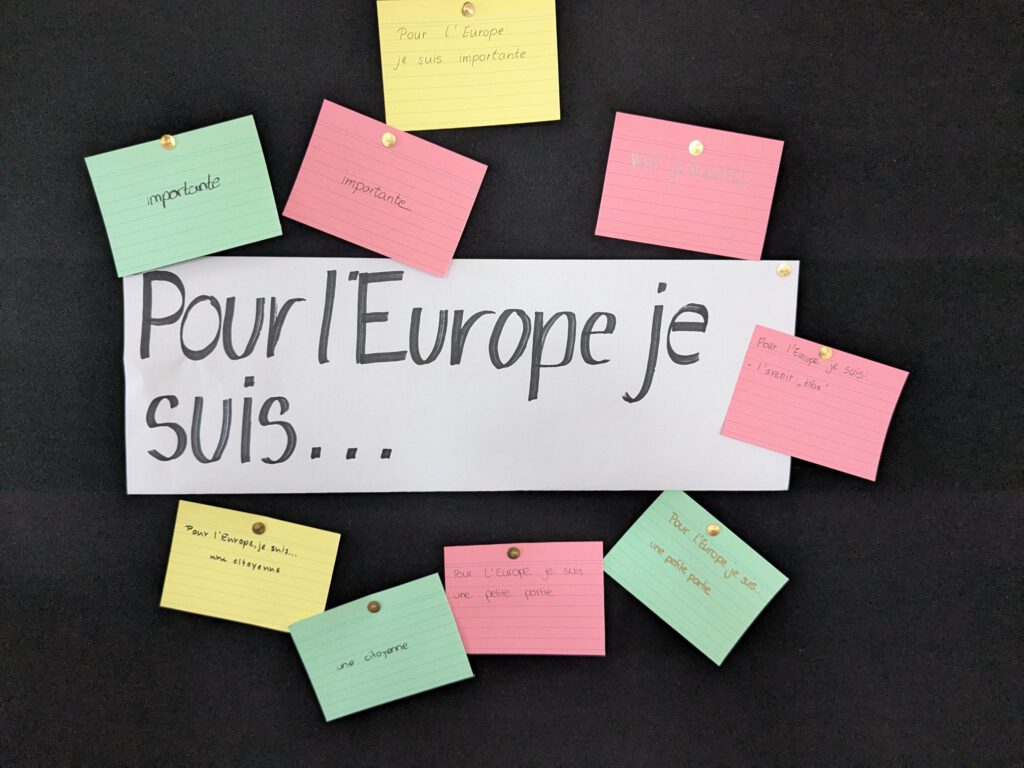 Pour l'Europe
je suis importante
importante
importante
Pour l'Europe je
suis...
Pour l'Europe je suis:
- l'avenir „élève“
Pour l'Europe, je suis...
une citoyenne
une citoyenne
Pour L'Europe je suis
une petite partie
Pour l'Europe je suis...
une petite partie